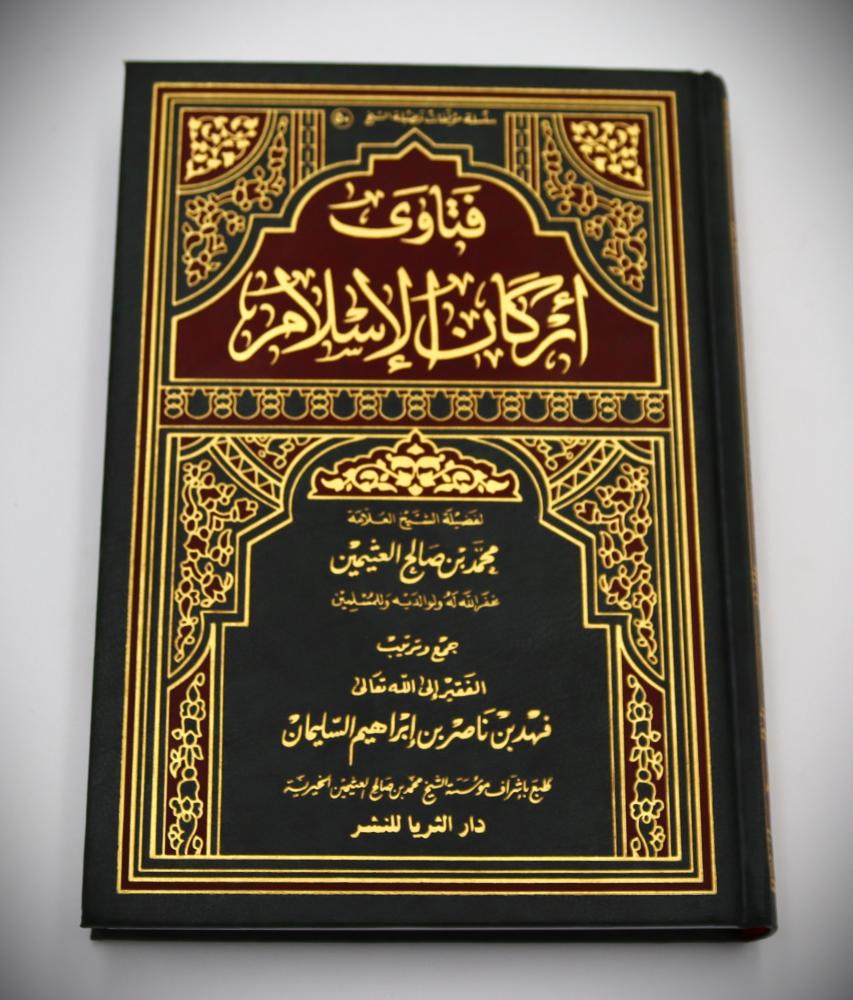 سلسلة مؤلفات فضيلة الشيخ ٥٠
فَتَاوَى
أَرْكَانُ الإِسْلَامِ
لفَضيْلَة الشَّيْخ العَلّامَة
محمَّد بْن صَالح العثيْمين
غفَر الله لَهُ ولوالديْه وَللمُسْلِميْن
جمْع وَترتيْب
الفَقيْر إلىَ اللّه تَعَالىَ
فهْد بْن نَاصر بْن إبْراهيْم السّليمان
طُبعَ بإشْرَاف مؤسّسَة الشَّيْخ محمَّد بْن صَالح العثيْمين الخيْريّة
دار الثريا للنشر